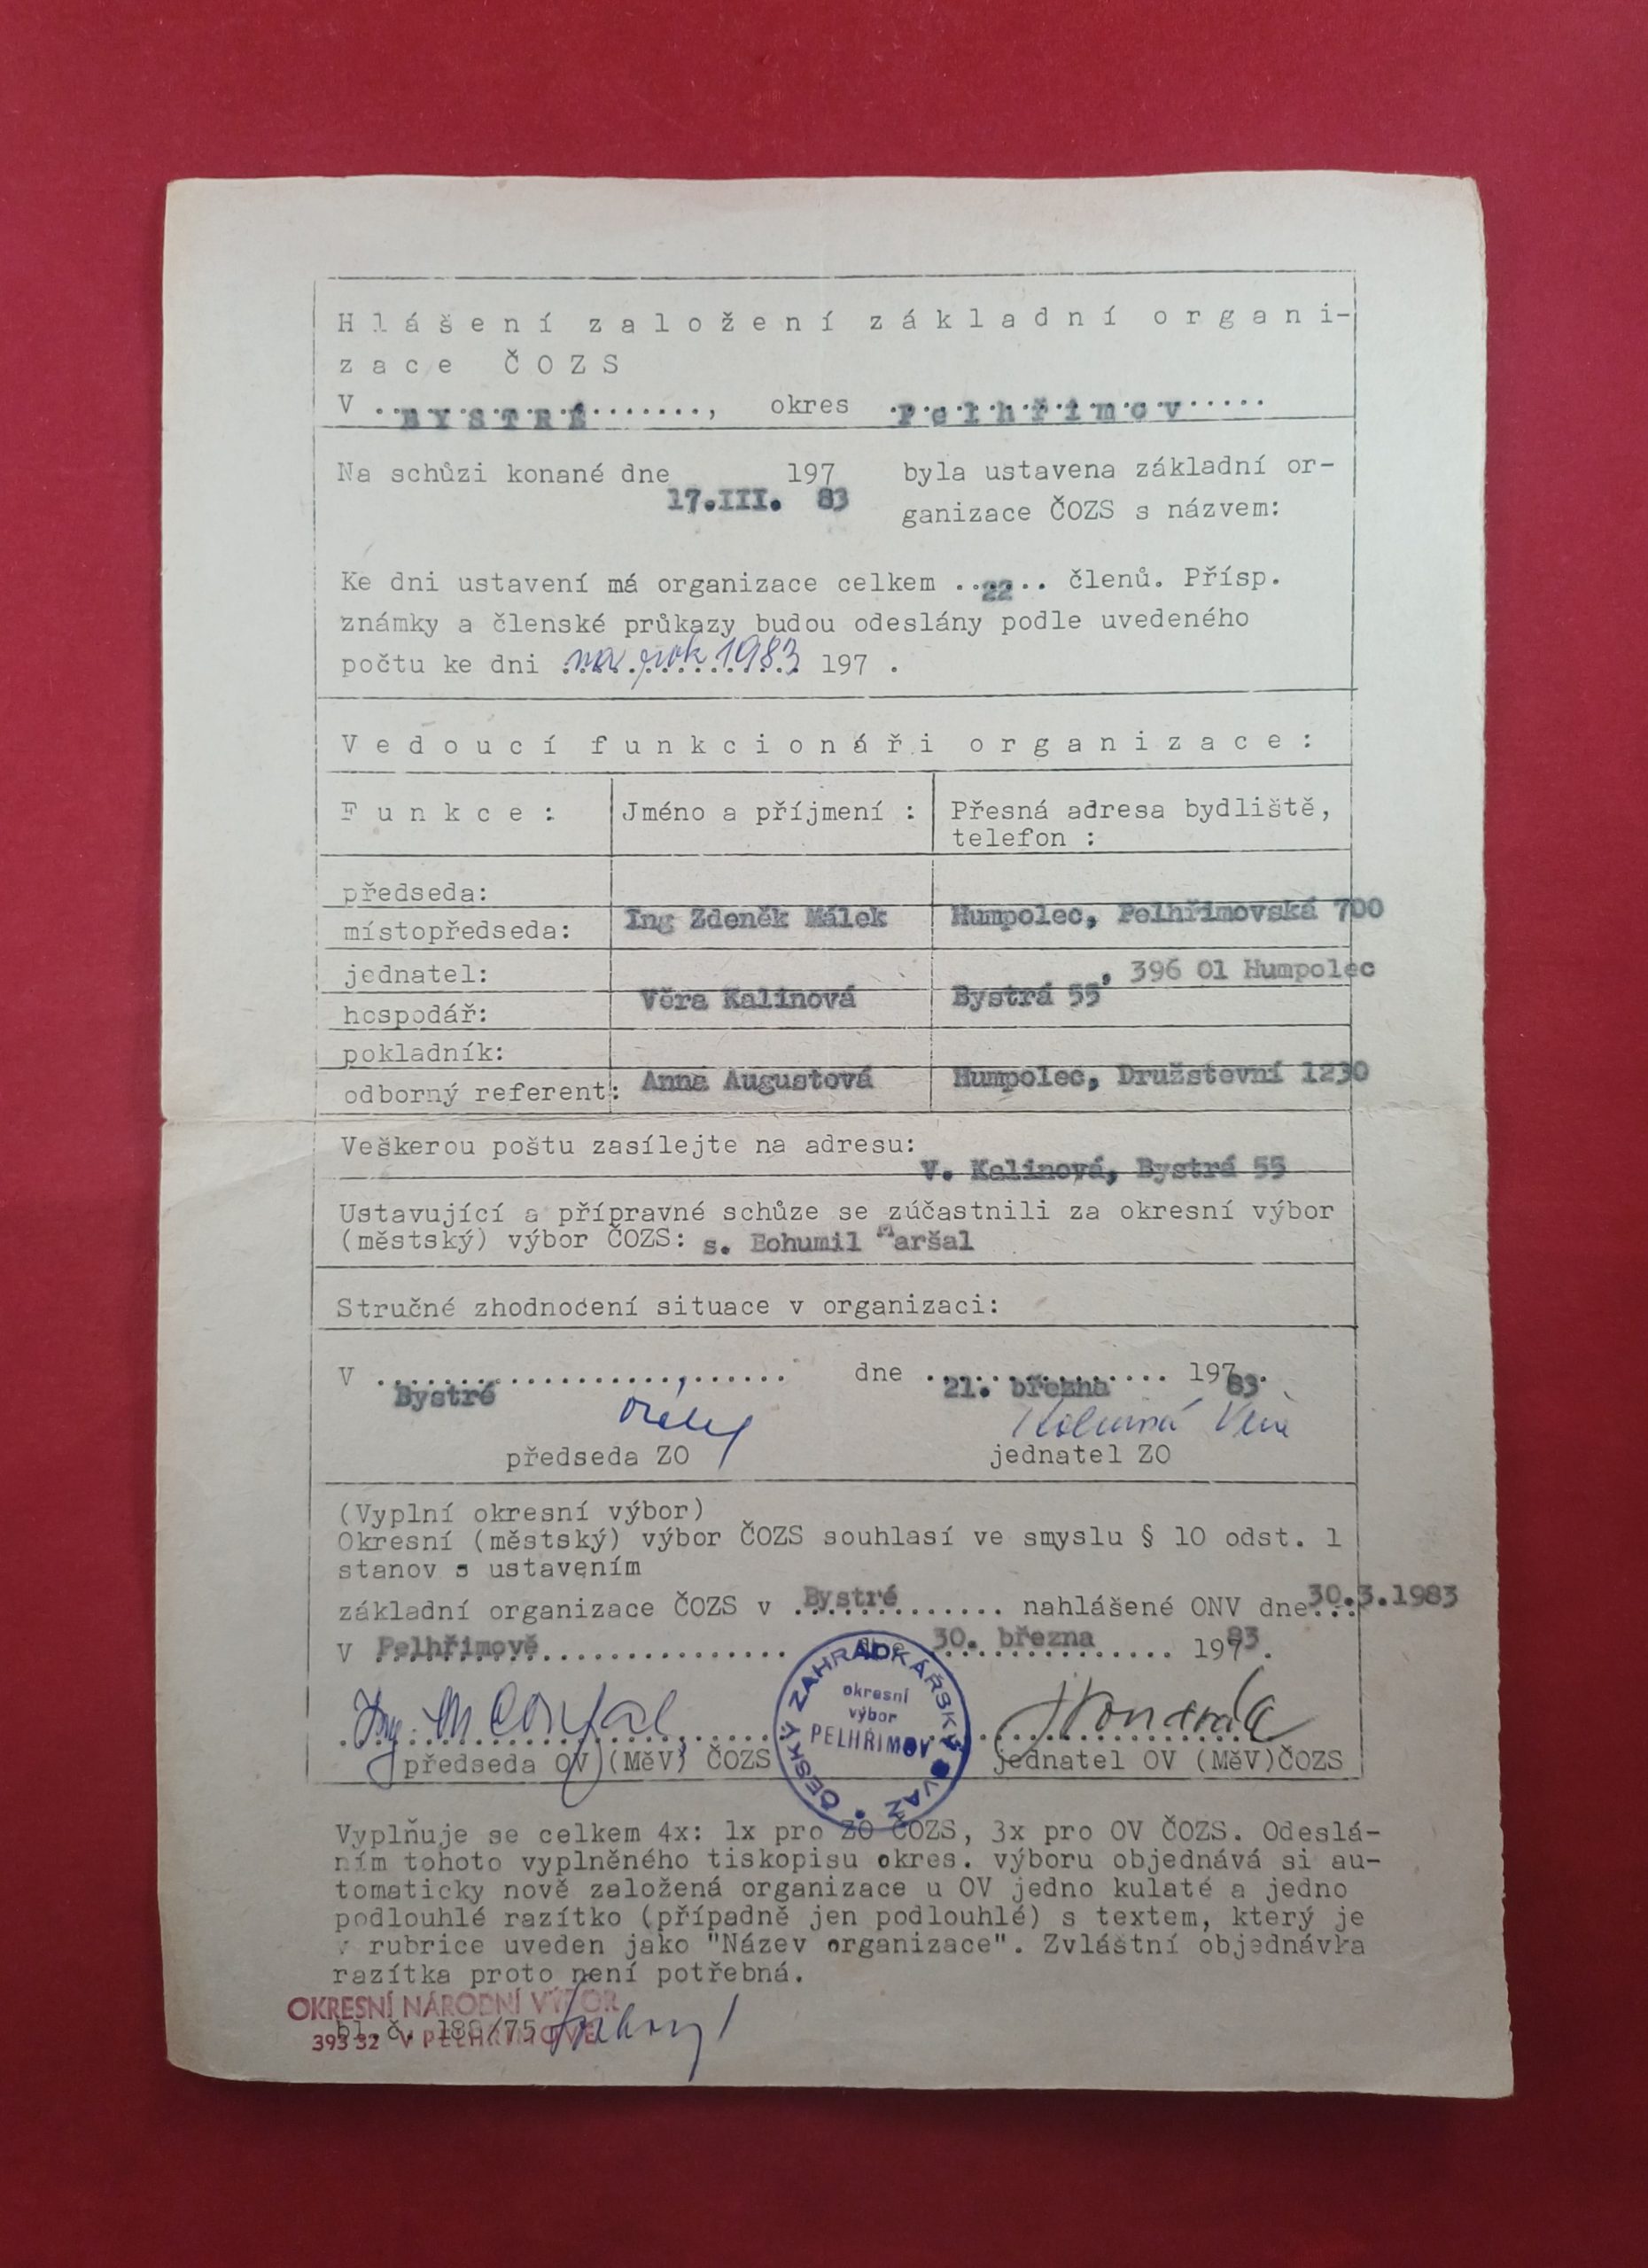 Hlášení založení základní organi-
zace ČOZS
V ..BYSTRÉ......., okres .Pelhřimov.....
Na schůzi konané dne 197 byla ustavena základní or-
17.III. 83 ganizace ČOZS s názvem:
Ke dni ustavení má organizace celkem ..22.. členů. Přísp.
známky a členské průkazy budou odeslány podle uvedeného
počtu ke dni na rok 1983 197 .
Vedoucí funkcionáři organizace:
Funkce: Jméno a příjmení : Přesná adresa bydliště,
telefon :
předseda:
Ing Zdeněk Málek Humpolec, Pelhřimovská 700
místopředseda:
jednatel: , 396 01 Humpolec
Věra Kalinová Bystrá 55
hospodář:
pokladník:
Anna Augustová Humpolec, Družstevní 1230
odborný referent:
Veškerou poštu zasílejte na adresu:
V. Kalinová, Bystrá 55
Ustavující a přípravné schůze se zúčastnili za okresní výbor
(městský) výbor ČOZS: s. Bohumil Maršal
Stručné zhodnocení situace v organizaci:
V .......................... dne ............... 197 .
Bystré 21. března 83
Kalinová Věra
předseda ZO jednatel ZO
(Vyplní okresní výbor)
Okresní (městský) výbor ČOZS souhlasí ve smyslu § 10 odst. 1
stanov s ustavením
základní organizace ČOZS v Bystré............. nahlášené ONV dne 30.3.1983
V Pelhřimově.................... dne 30. března 197 83.
Ing.
předseda OV (MěV) ČOZS jednatel OV (MěV)ČOZS
ČESKÝ ZAHRÁDKÁŘSKÝ SVAZ
okresní
výbor
PELHŘIMOV
Vyplňuje se celkem 4x: 1x pro ZO ČOZS, 3x pro OV ČOZS. Odeslá-
ním tohoto vyplněného tiskopisu okres. výboru objednává si au-
tomaticky nově založená organizace u OV jedno kulaté a jedno
podlouhlé razítko (případně jen podlouhlé) s textem, který je
v rubrice uveden jako "Název organizace". Zvláštní objednávka
razítka proto není potřebná.
OKRESNÍ NÁRODNÍ VÝBOR
bl. č. /75
393 32 V PELHŘIMOVĚ